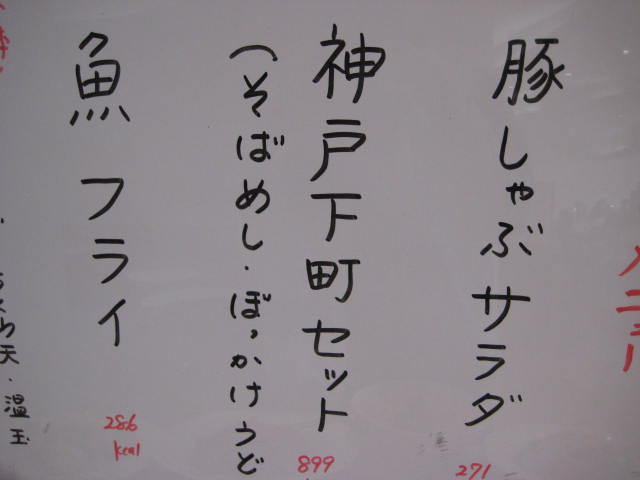 メニュー
豚しゃぶサラダ
271
神戸下町セット
899
(そばめし・ぼっかけうど
魚フライ
286
kcal
天・温玉